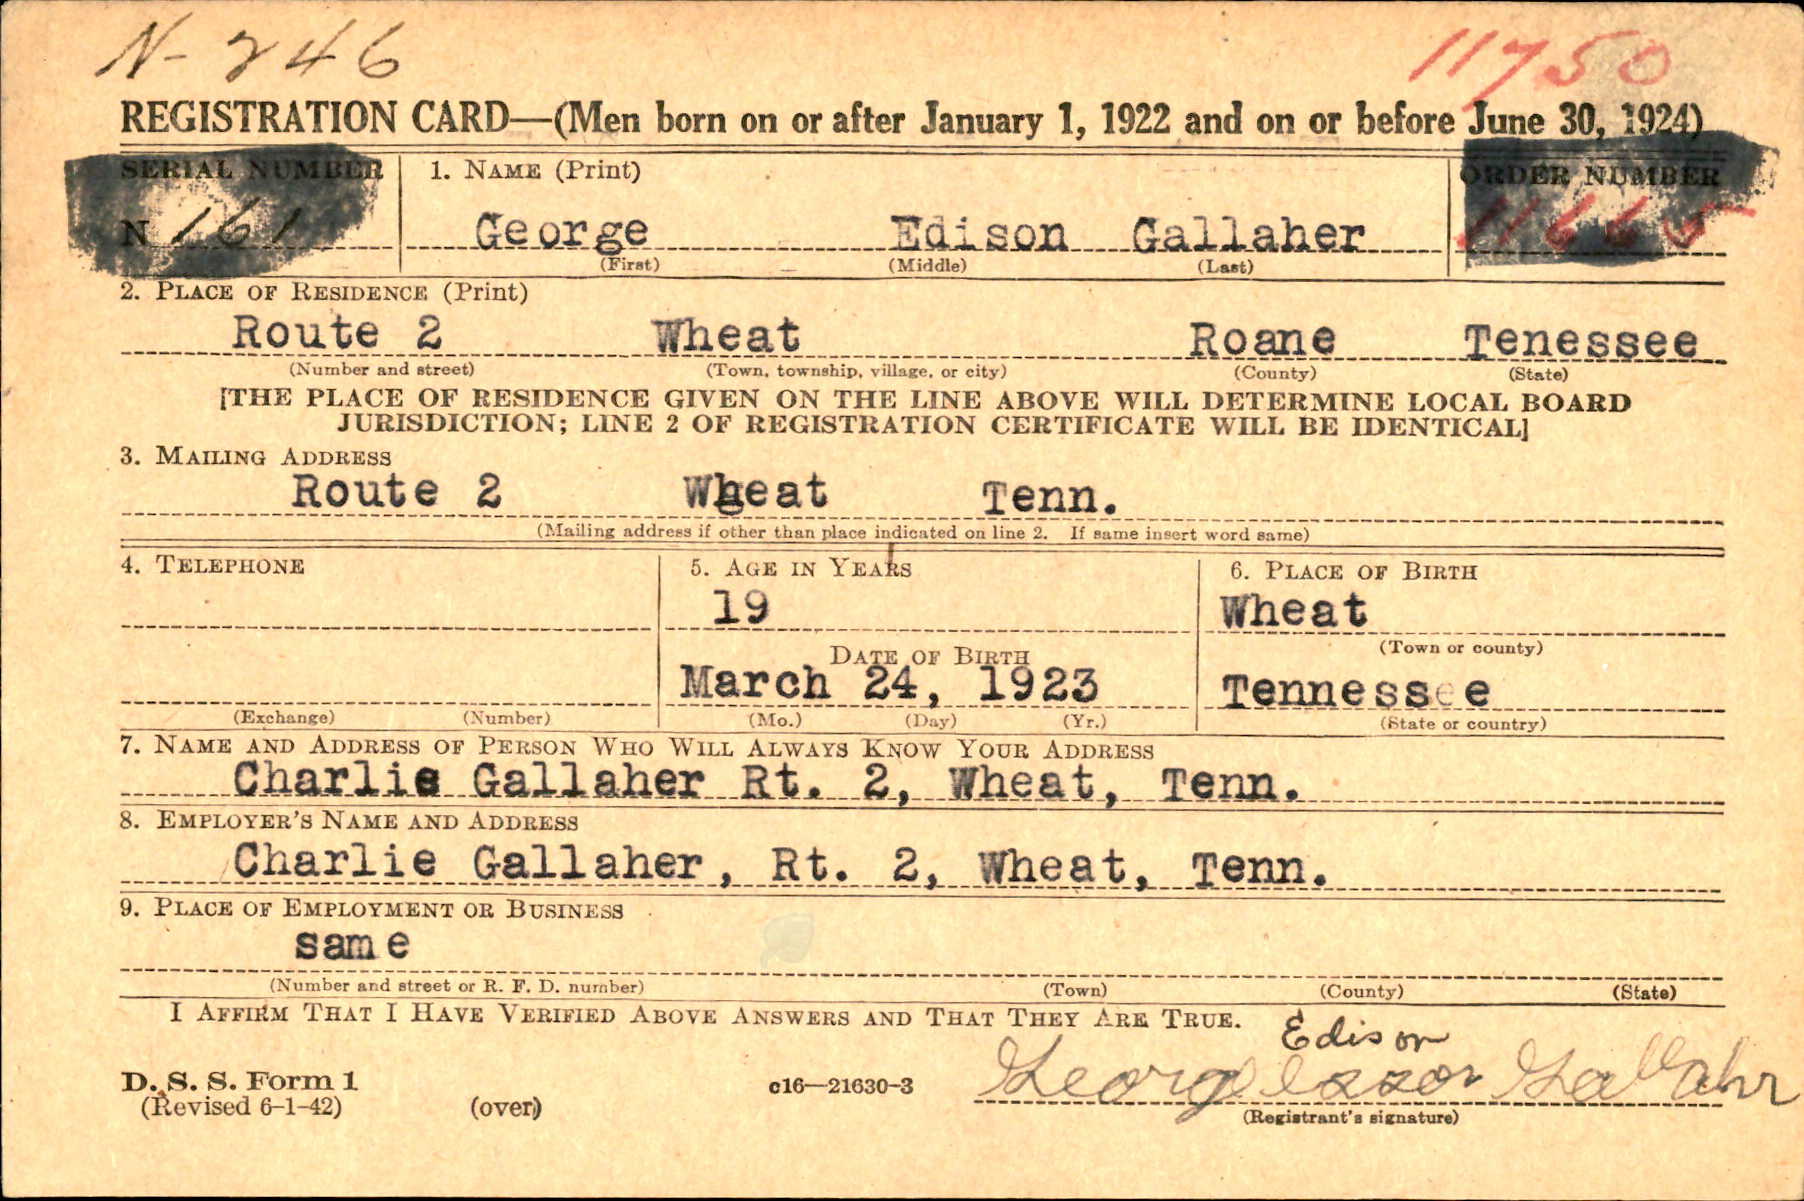 N-246 11750
REGISTRATION CARD—(Men born on or after January 1, 1922 and on or before June 30, 1924)
SERIAL NUMBER 1. NAME (Print) ORDER NUMBER
N 161 George Edison Gallaher 11665
(First) (Middle) (Last)
2. PLACE OF RESIDENCE (Print)
Route 2 Wheat Roane Tenessee
(Number and street) (Town, township, village, or city) (County) (State)
[THE PLACE OF RESIDENCE GIVEN ON THE LINE ABOVE WILL DETERMINE LOCAL BOARD
JURISDICTION; LINE 2 OF REGISTRATION CERTIFICATE WILL BE IDENTICAL]
3. MAILING ADDRESS
Route 2 Wheat Tenn.
(Mailing address if other than place indicated on line 2. If same insert word same)
4. TELEPHONE 5. AGE IN YEARS 6. PLACE OF BIRTH
19 Wheat
(Town or county)
DATE OF BIRTH
March 24, 1923 Tennessee
(Exchange) (Number) (Mo.) (Day) (Yr.) (State or country)
7. NAME AND ADDRESS OF PERSON WHO WILL ALWAYS KNOW YOUR ADDRESS
Charlie Gallaher Rt. 2, Wheat, Tenn.
8. EMPLOYER'S NAME AND ADDRESS
Charlie Gallaher, Rt. 2, Wheat, Tenn.
9. PLACE OF EMPLOYMENT OR BUSINESS
same
(Number and street or R. F. D. number) (Town) (County) (State)
I AFFIRM THAT I HAVE VERIFIED ABOVE ANSWERS AND THAT THEY ARE TRUE.
Edison
D. S. S. Form 1 c16—21630-3 George
(Revised 6-1-42) (over) (Registrant's signature)